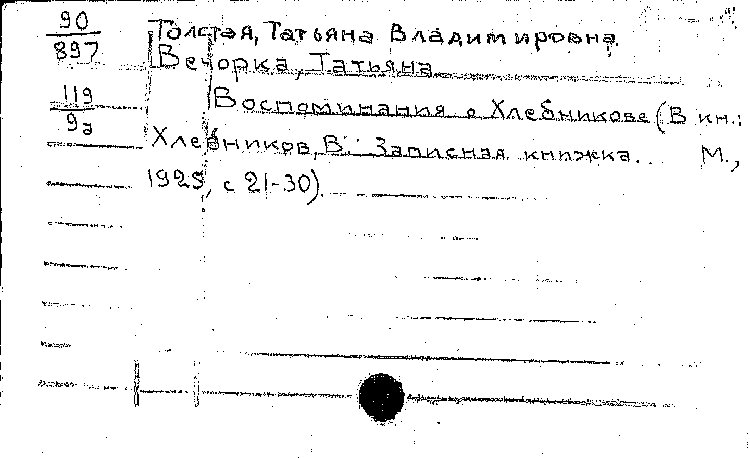 90
897
Толстая, Татьяна Владимировна.
Вечорка, Татьяна
119
9а
Воспоминания о Хлебникове (В кн.:
Хлебников, В. Записная книжка... М.,
1925, с 21-30).